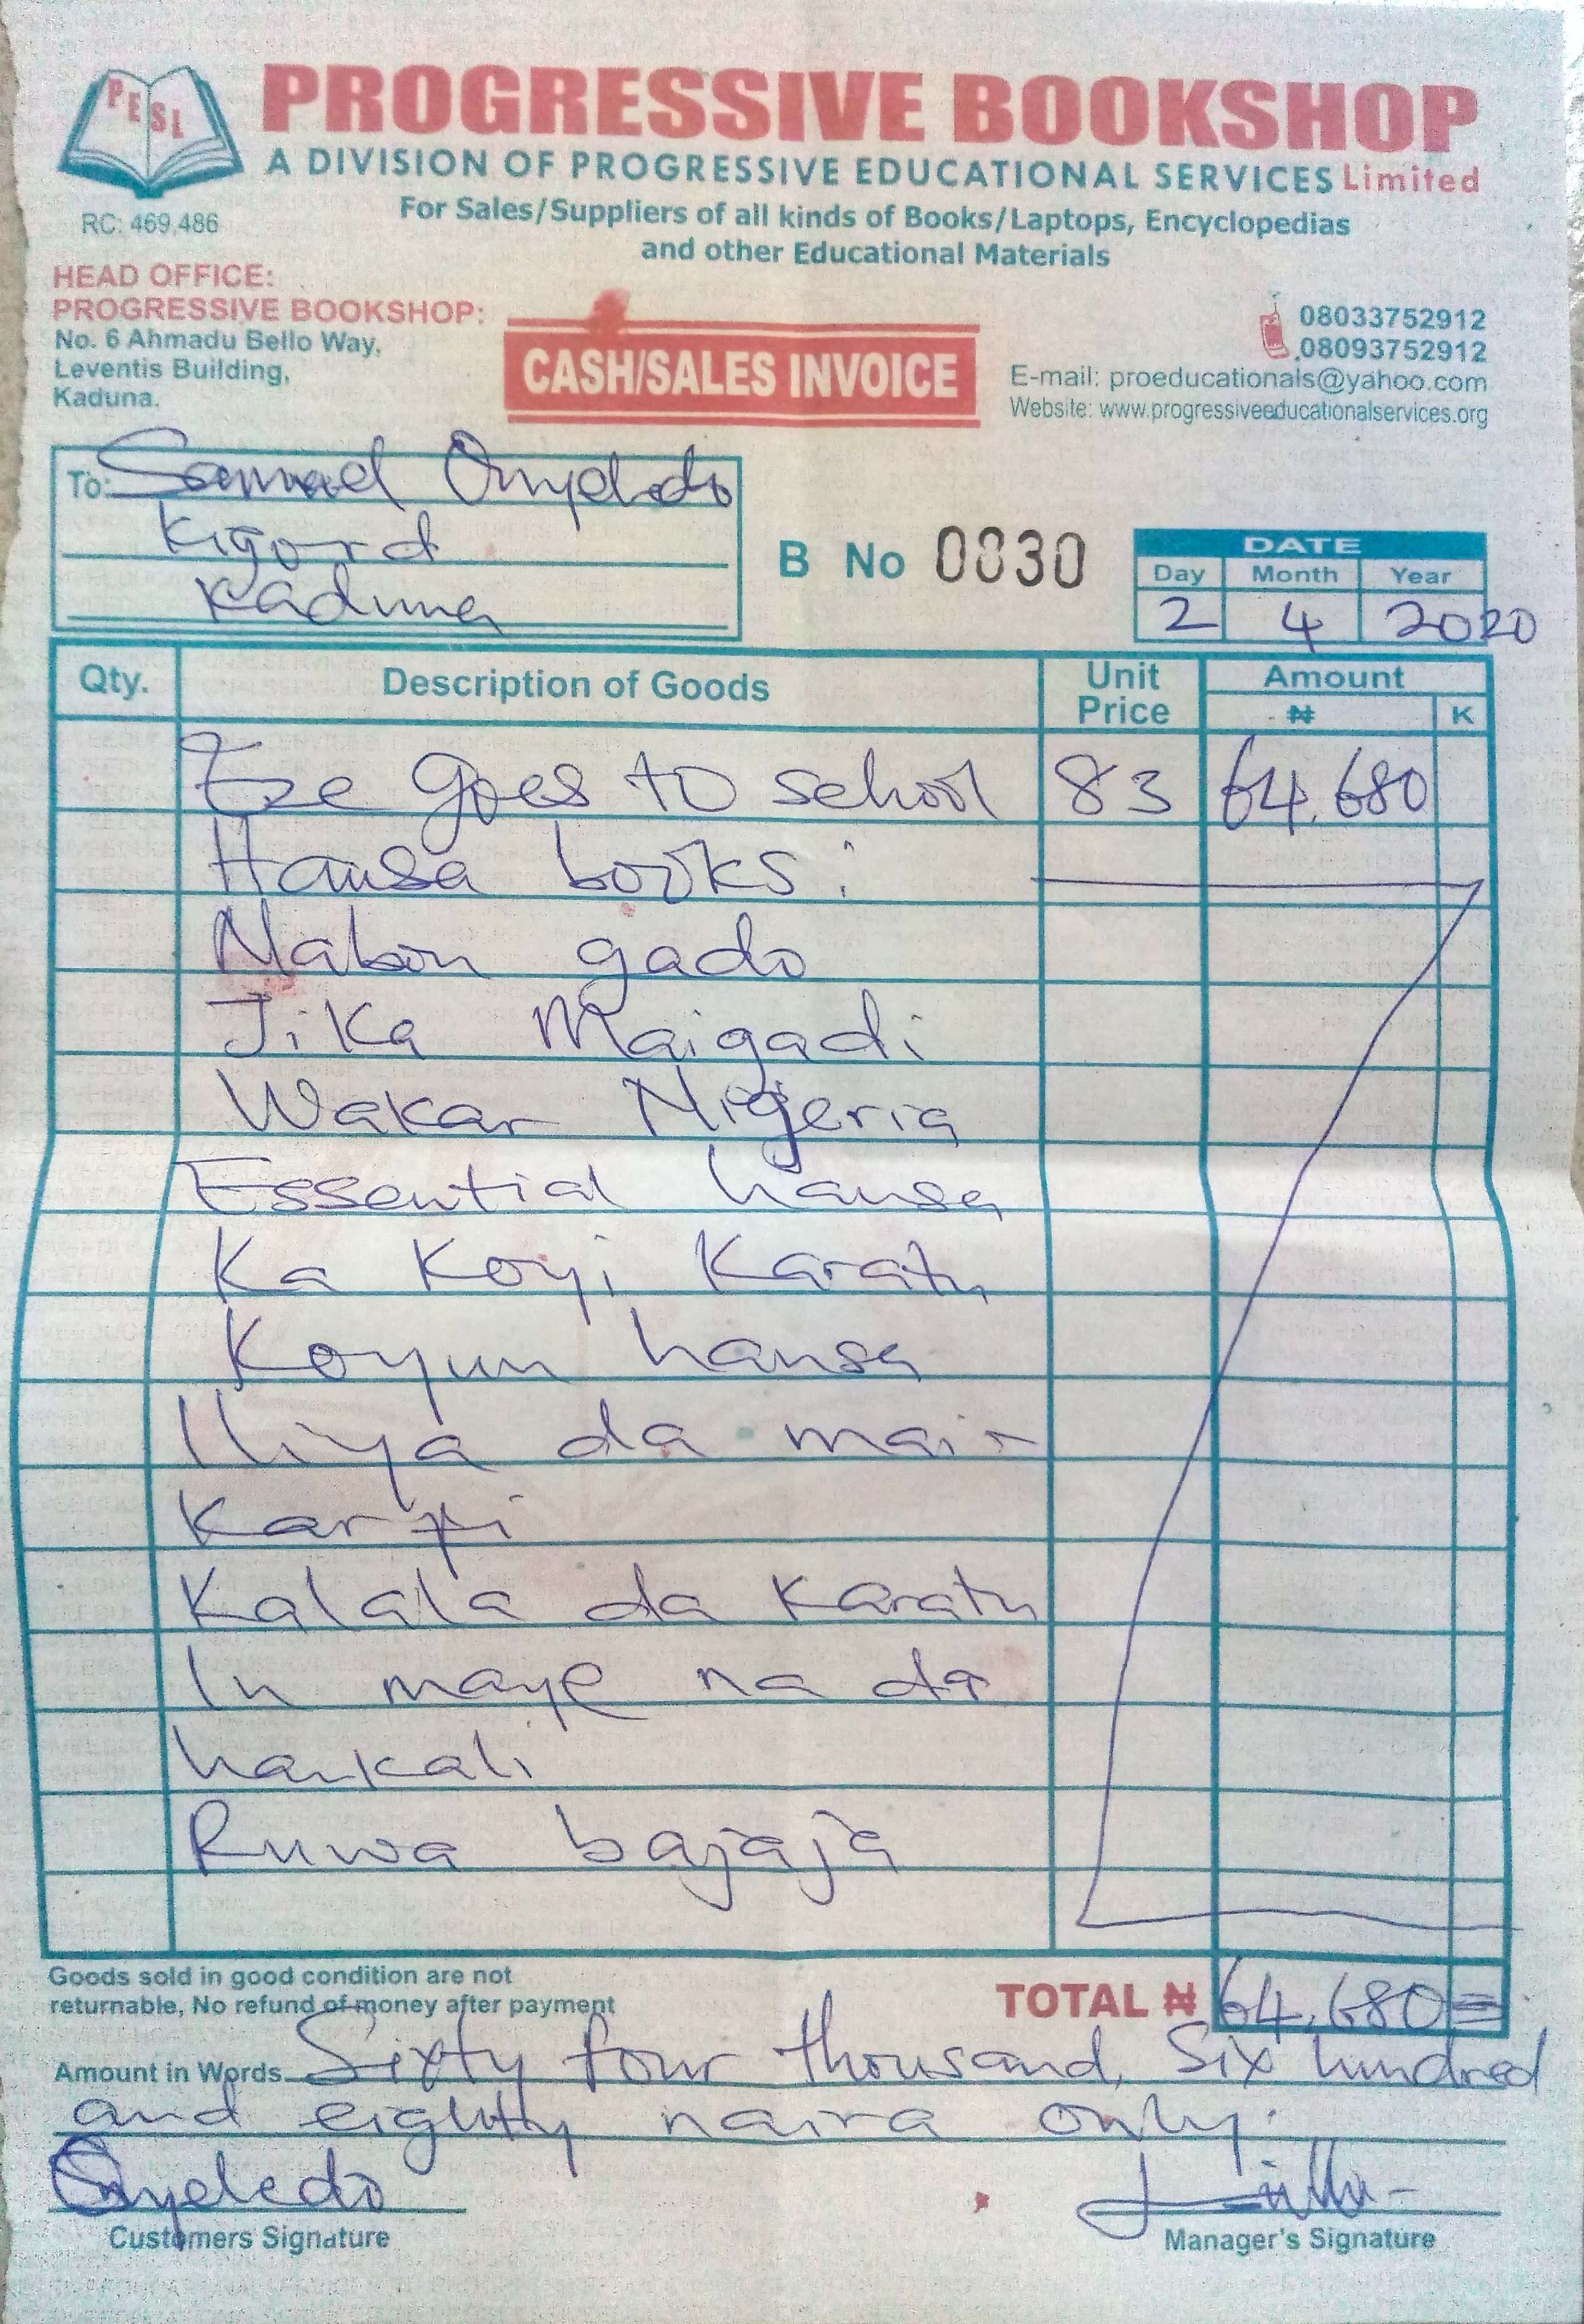 PESL
PROGRESSIVE BOOKSHOP
A DIVISION OF PROGRESSIVE EDUCATIONAL SERVICES Limited
For Sales/Suppliers of all kinds of Books/Laptops, Encyclopedias
and other Educational Materials
RC: 469,486
HEAD OFFICE:
PROGRESSIVE BOOKSHOP:
No. 6 Ahmadu Bello Way,
Leventis Building,
Kaduna.
CASH/SALES INVOICE
08033752912
08093752912
E-mail: proeducationals@yahoo.com
Website: www.progressiveeducationalservices.org
To: Samuel
Kaduna
B No 0030
DATE
Day Month Year
2 4 2020
Qty. Description of Goods Unit Price Amount
₦ K
Eze goes to school 83 64,680
Hausa books:
Mabon gado
Jika Maigadi
Wakar Nigeria
Essential hausa
Ka Koyi Karatu
Koyun hausa
Iliya da mai-
Karfi
Kalala da Karatu
In maye na da
hankali
Ruwa bajaja
Goods sold in good condition are not
returnable, No refund of money after payment
TOTAL ₦ 64,680=
Amount in Words Sixty four thousand, Six hundred
and eighty naira only.
Onyeledo
Customers Signature
Manager's Signature